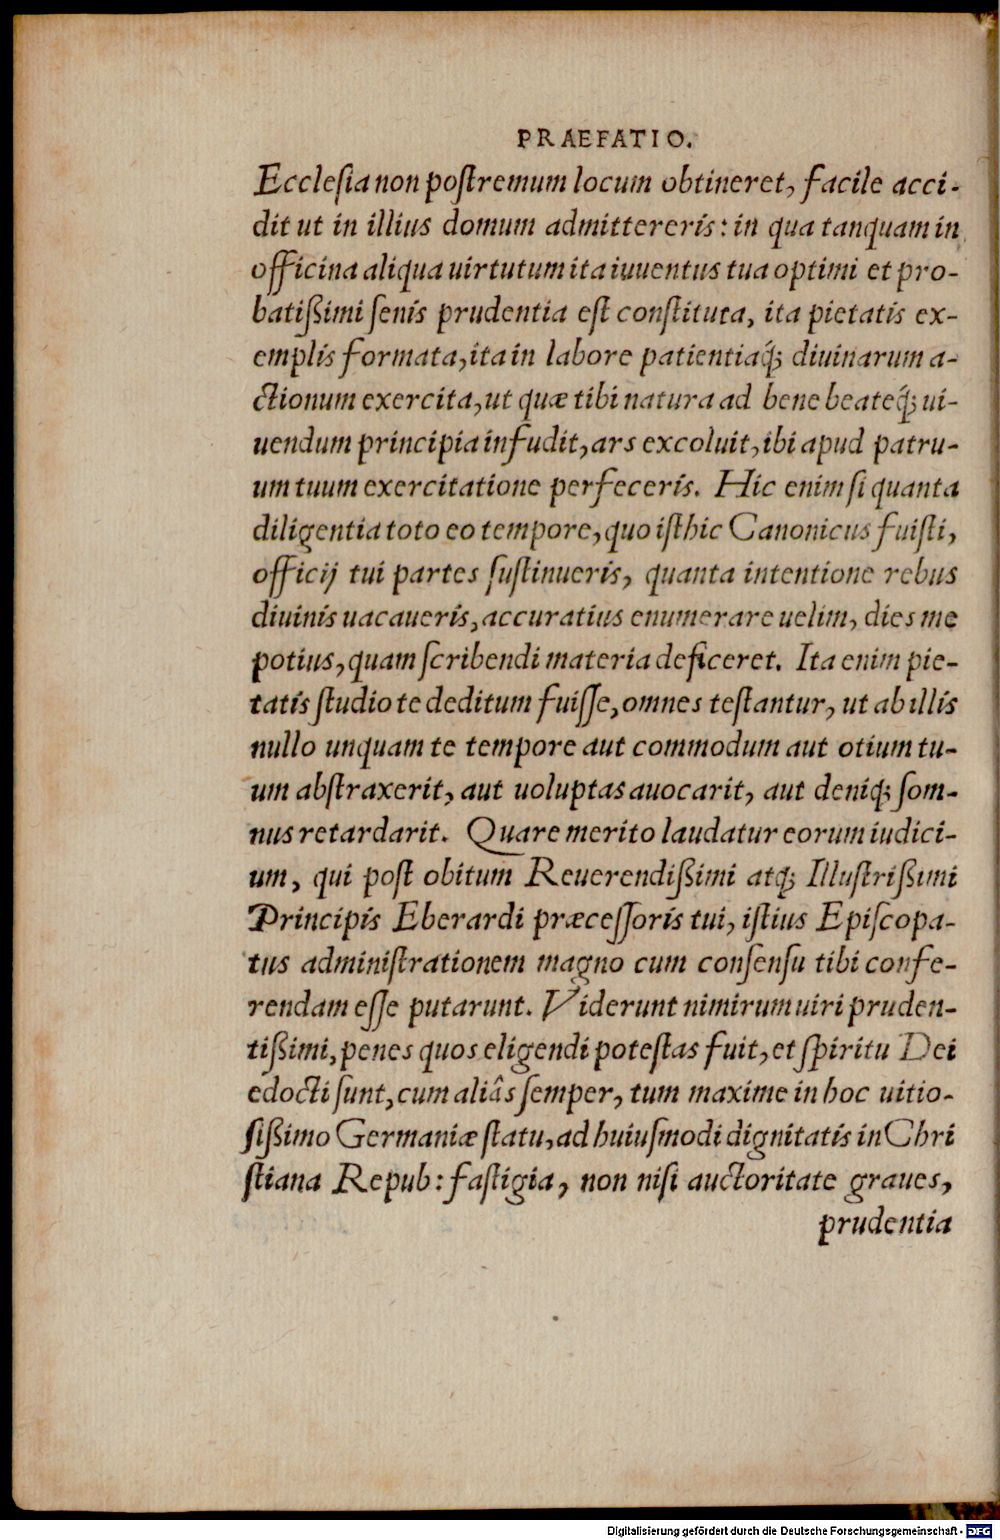 PRAEFATIO.
Ecclesia non postremum locum obtineret, facile acci-
dit ut in illius domum admittereris: in qua tanquam in
officina aliqua uirtutum ita iuuentus tua optimi et pro-
batißimi senis prudentia est constituta, ita pietatis ex-
emplis formata, ita in labore patientiaq́; diuinarum a-
ctionum exercita, ut quæ tibi natura ad bene beateq́; ui-
uendum principia infudit, ars excoluit, ibi apud patru-
um tuum exercitatione perfeceris. Hic enim si quanta
diligentia toto eo tempore, quo isthic Canonicus fuisti,
officij tui partes sustinueris, quanta intentione rebus
diuinis uacaueris, accuratius enumerare uelim, dies me
potius, quam scribendi materia deficeret. Ita enim pie-
tatis studio te deditum fuisse, omnes testantur, ut ab illis
nullo unquam te tempore aut commodum aut otium tu-
um abstraxerit, aut uoluptas auocarit, aut deniq; som-
nus retardarit. Quare merito laudatur eorum iudici-
um, qui post obitum Reuerendißimi atq; Illustrißimi
Principis Eberardi præcessoris tui, istius Episcopa-
tus administrationem magno cum consensu tibi confe-
rendam esse putarunt. Viderunt nimirum uiri pruden-
tißimi, penes quos eligendi potestas fuit, et spiritu Dei
edocti sunt, cum aliâs semper, tum maxime in hoc uitio-
sißimo Germaniæ statu, ad huiusmodi dignitatis in Chri
stiana Repub: fastigia, non nisi auctoritate graues,
prudentia
Digitalisierung gefördert durch die Deutsche Forschungsgemeinschaft - DFG